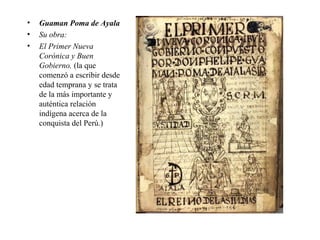 • Guaman Poma de Ayala
• Su obra:
• El Primer Nueva
Corónica y Buen
Gobierno. (la que
comenzó a escribir desde
edad temprana y se trata
de la más importante y
auténtica relación
indígena acerca de la
conquista del Perú.)
ELPRIMER
NVEVA CORONICA I BVEN
GOBIERNO CONPVESTO
POR DON PHELIPE GVA
MAN POMA DE AIALA
S.C.R.M.
AIALA
EL REINO DE LAS INDIAS